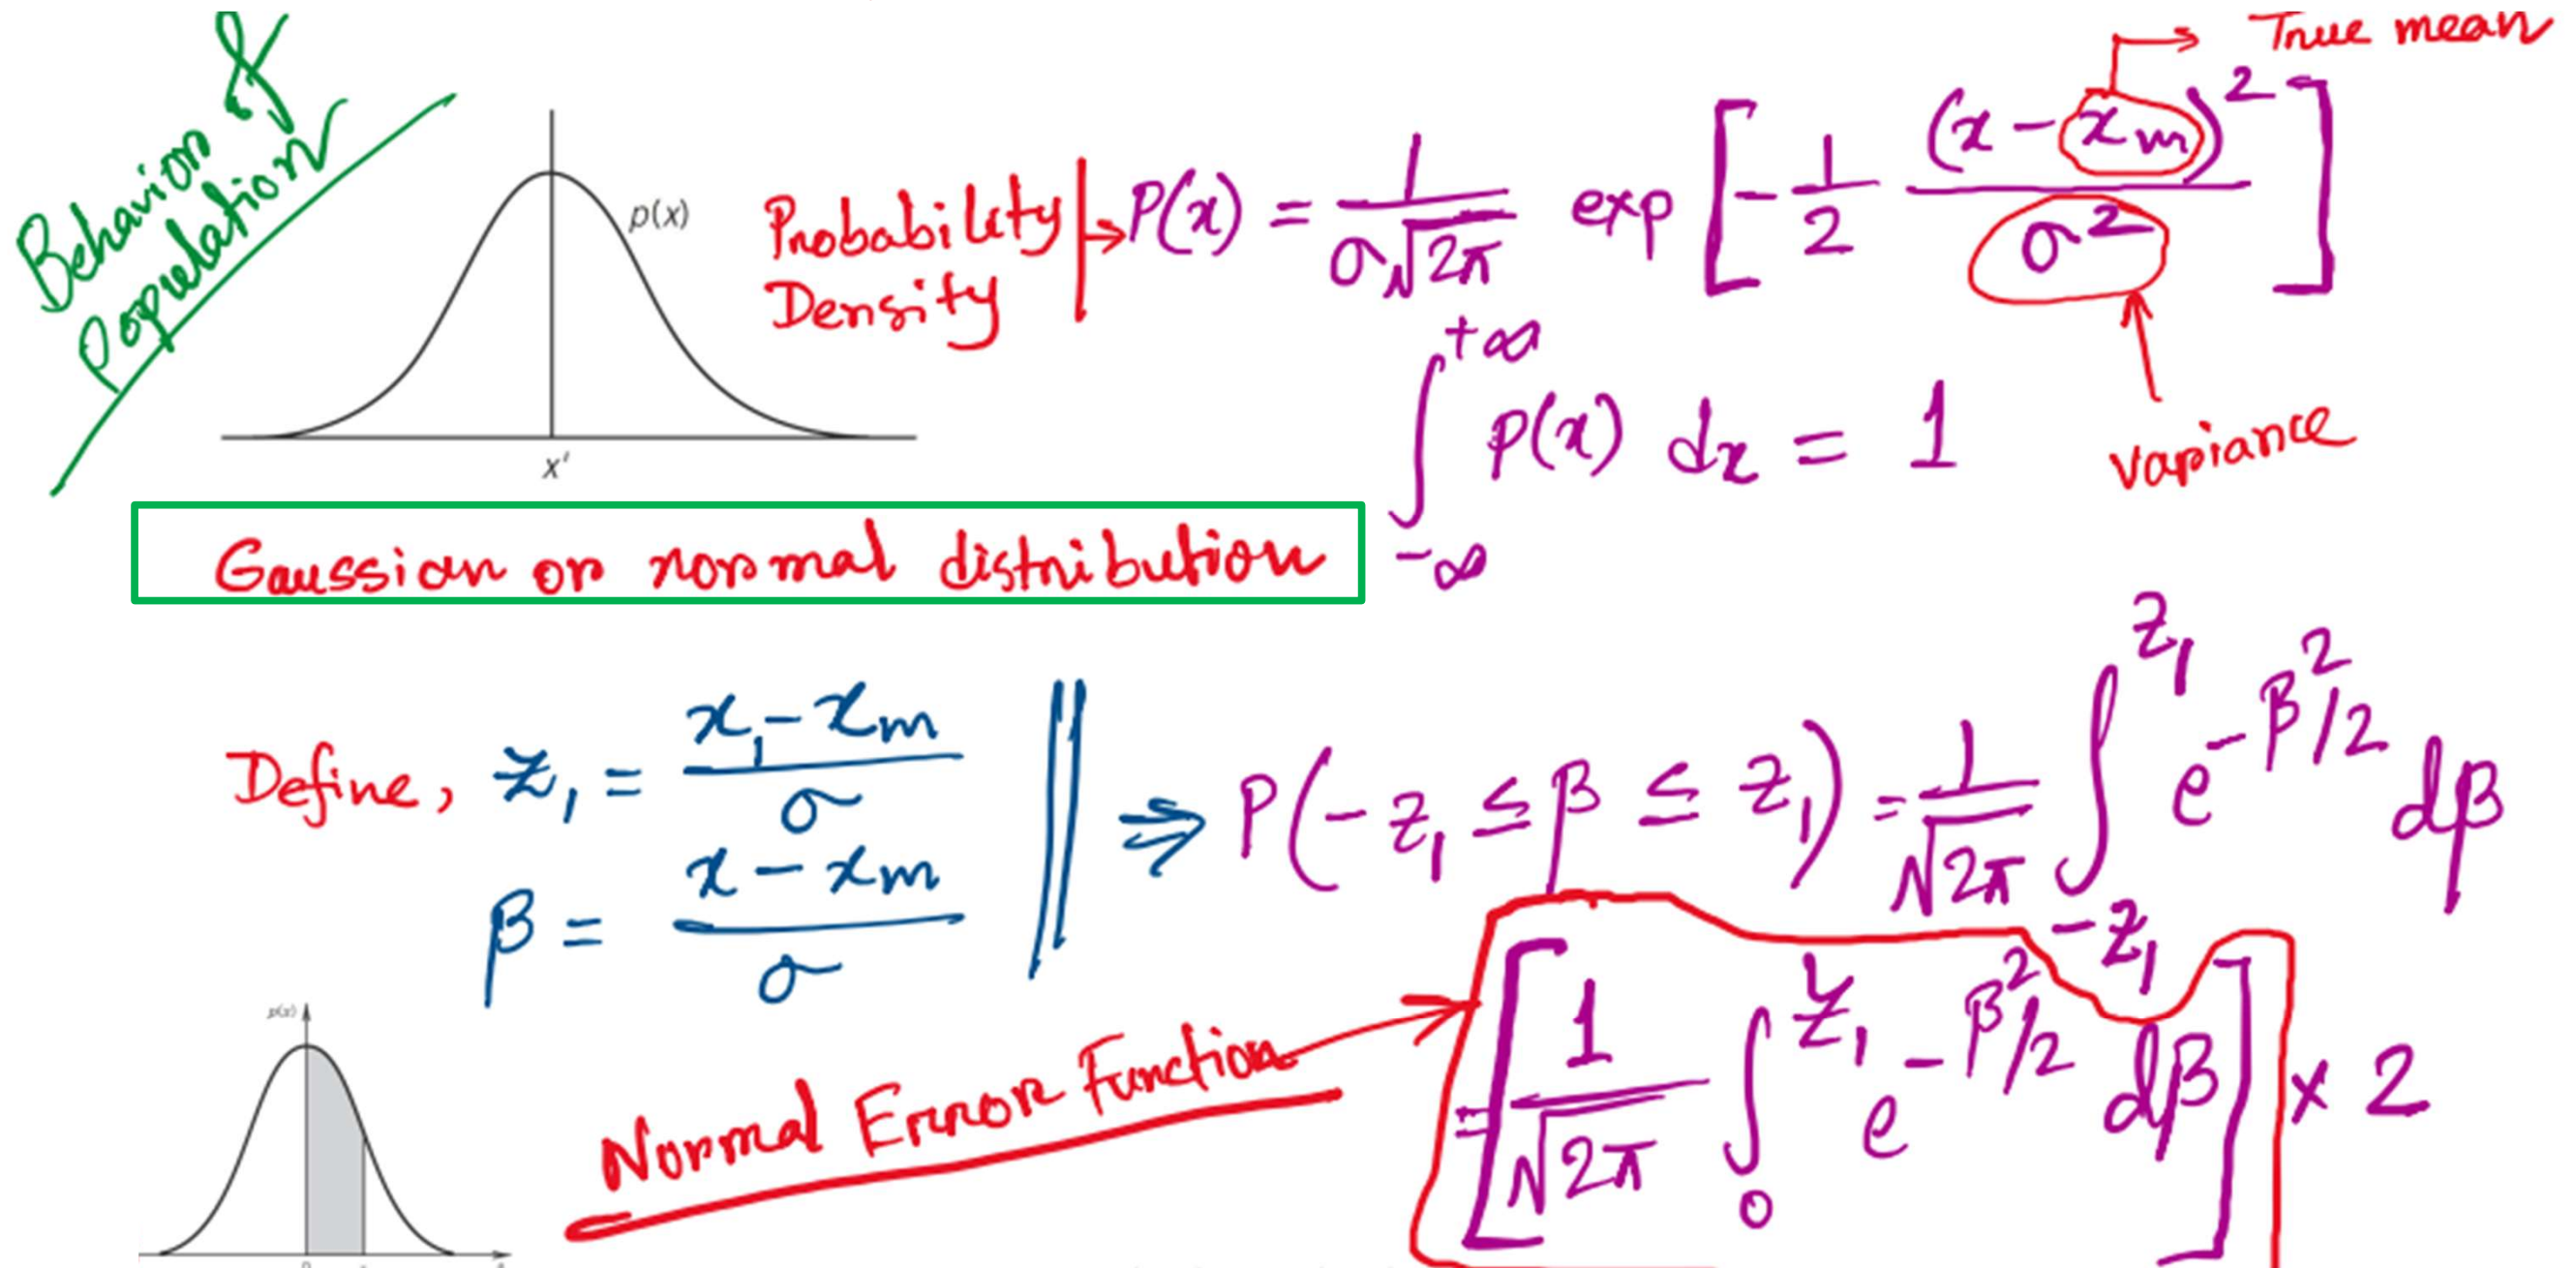 Behavior of
Population
p(x)
x'
Probability
Density
P(x) = 1/(σ√2π) exp [ -1/2 (x - xm)²/σ² ]
True mean
variance
∫_{-∞}^{+∞} p(x) dx = 1
Gaussian or normal distribution
Define, z₁ = (x₁ - xm)/σ
β = (x - xm)/σ
⇒ P(-z₁ ≤ β ≤ z₁) = 1/√2π ∫_{-z₁}^{z₁} e^{-β²/2} dβ
= [ 1/√2π ∫_0^{z₁} e^{-β²/2} dβ ] × 2
Normal Error Function
p(x)
0